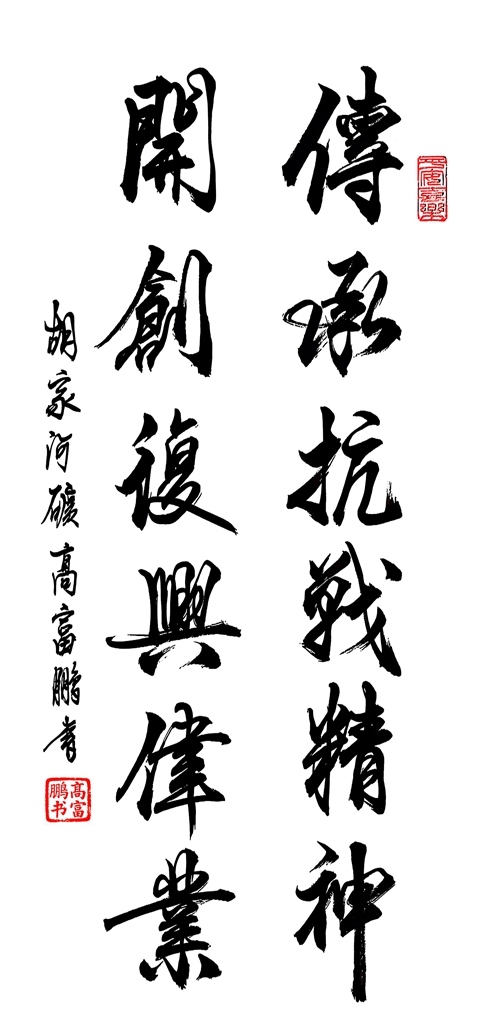 傳承抗戰精神
開創復興偉業
胡家河礦高富鵬書
高富鹏书